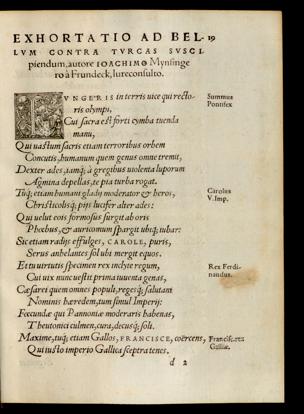 EXHORTATIO AD BEL- 19
LVM CONTRA TVRCAS SVSCI
piendum, autore IOACHIMO Mynsinge
ro à Frundeck, Iureconsulto.
FVNGERIS in terris uice qui recto-
ris olympi,
Summus
Pontifex
Cui sacra est forti cymba tuenda
manu,
Qui uastum sacris etiam terroribus orbem
Concutis, humanum quem genus omne tremit,
Dexter ades, tamq; à gregibus uiolenta luporum
Agmina depellas, te pia turba rogat.
Tuq; etiam humani gladij moderator & heros,
Carolus
V. Imp.
Christicolisq; pijs lucifer alter ades:
Qui uelut eois formosus surgit ab oris
Phœbus, & auricomum spargit ubiq; iubar:
Sic etiam radijs effulges, CAROLE, puris,
Serus anhelantes sol ubi mergit equos.
Et tu uirtutis specimen rex inclyte regum,
Rex Ferdi-
nandus.
Cui uix nunc uestit prima iuuenta genas,
Cæsarei quem omnes populi, regesq; salutant
Nominis hæredem, tum simul Imperij:
Fœcundæ qui Pannoniæ moderaris habenas,
Theutonici culmen, cura, decusq; soli.
Maxime, tuq; etiam Gallos, FRANCISCE, coërcens,
Francis. rex
Galliæ.
Qui iusto imperio Gallica sceptra tenes.
d 2